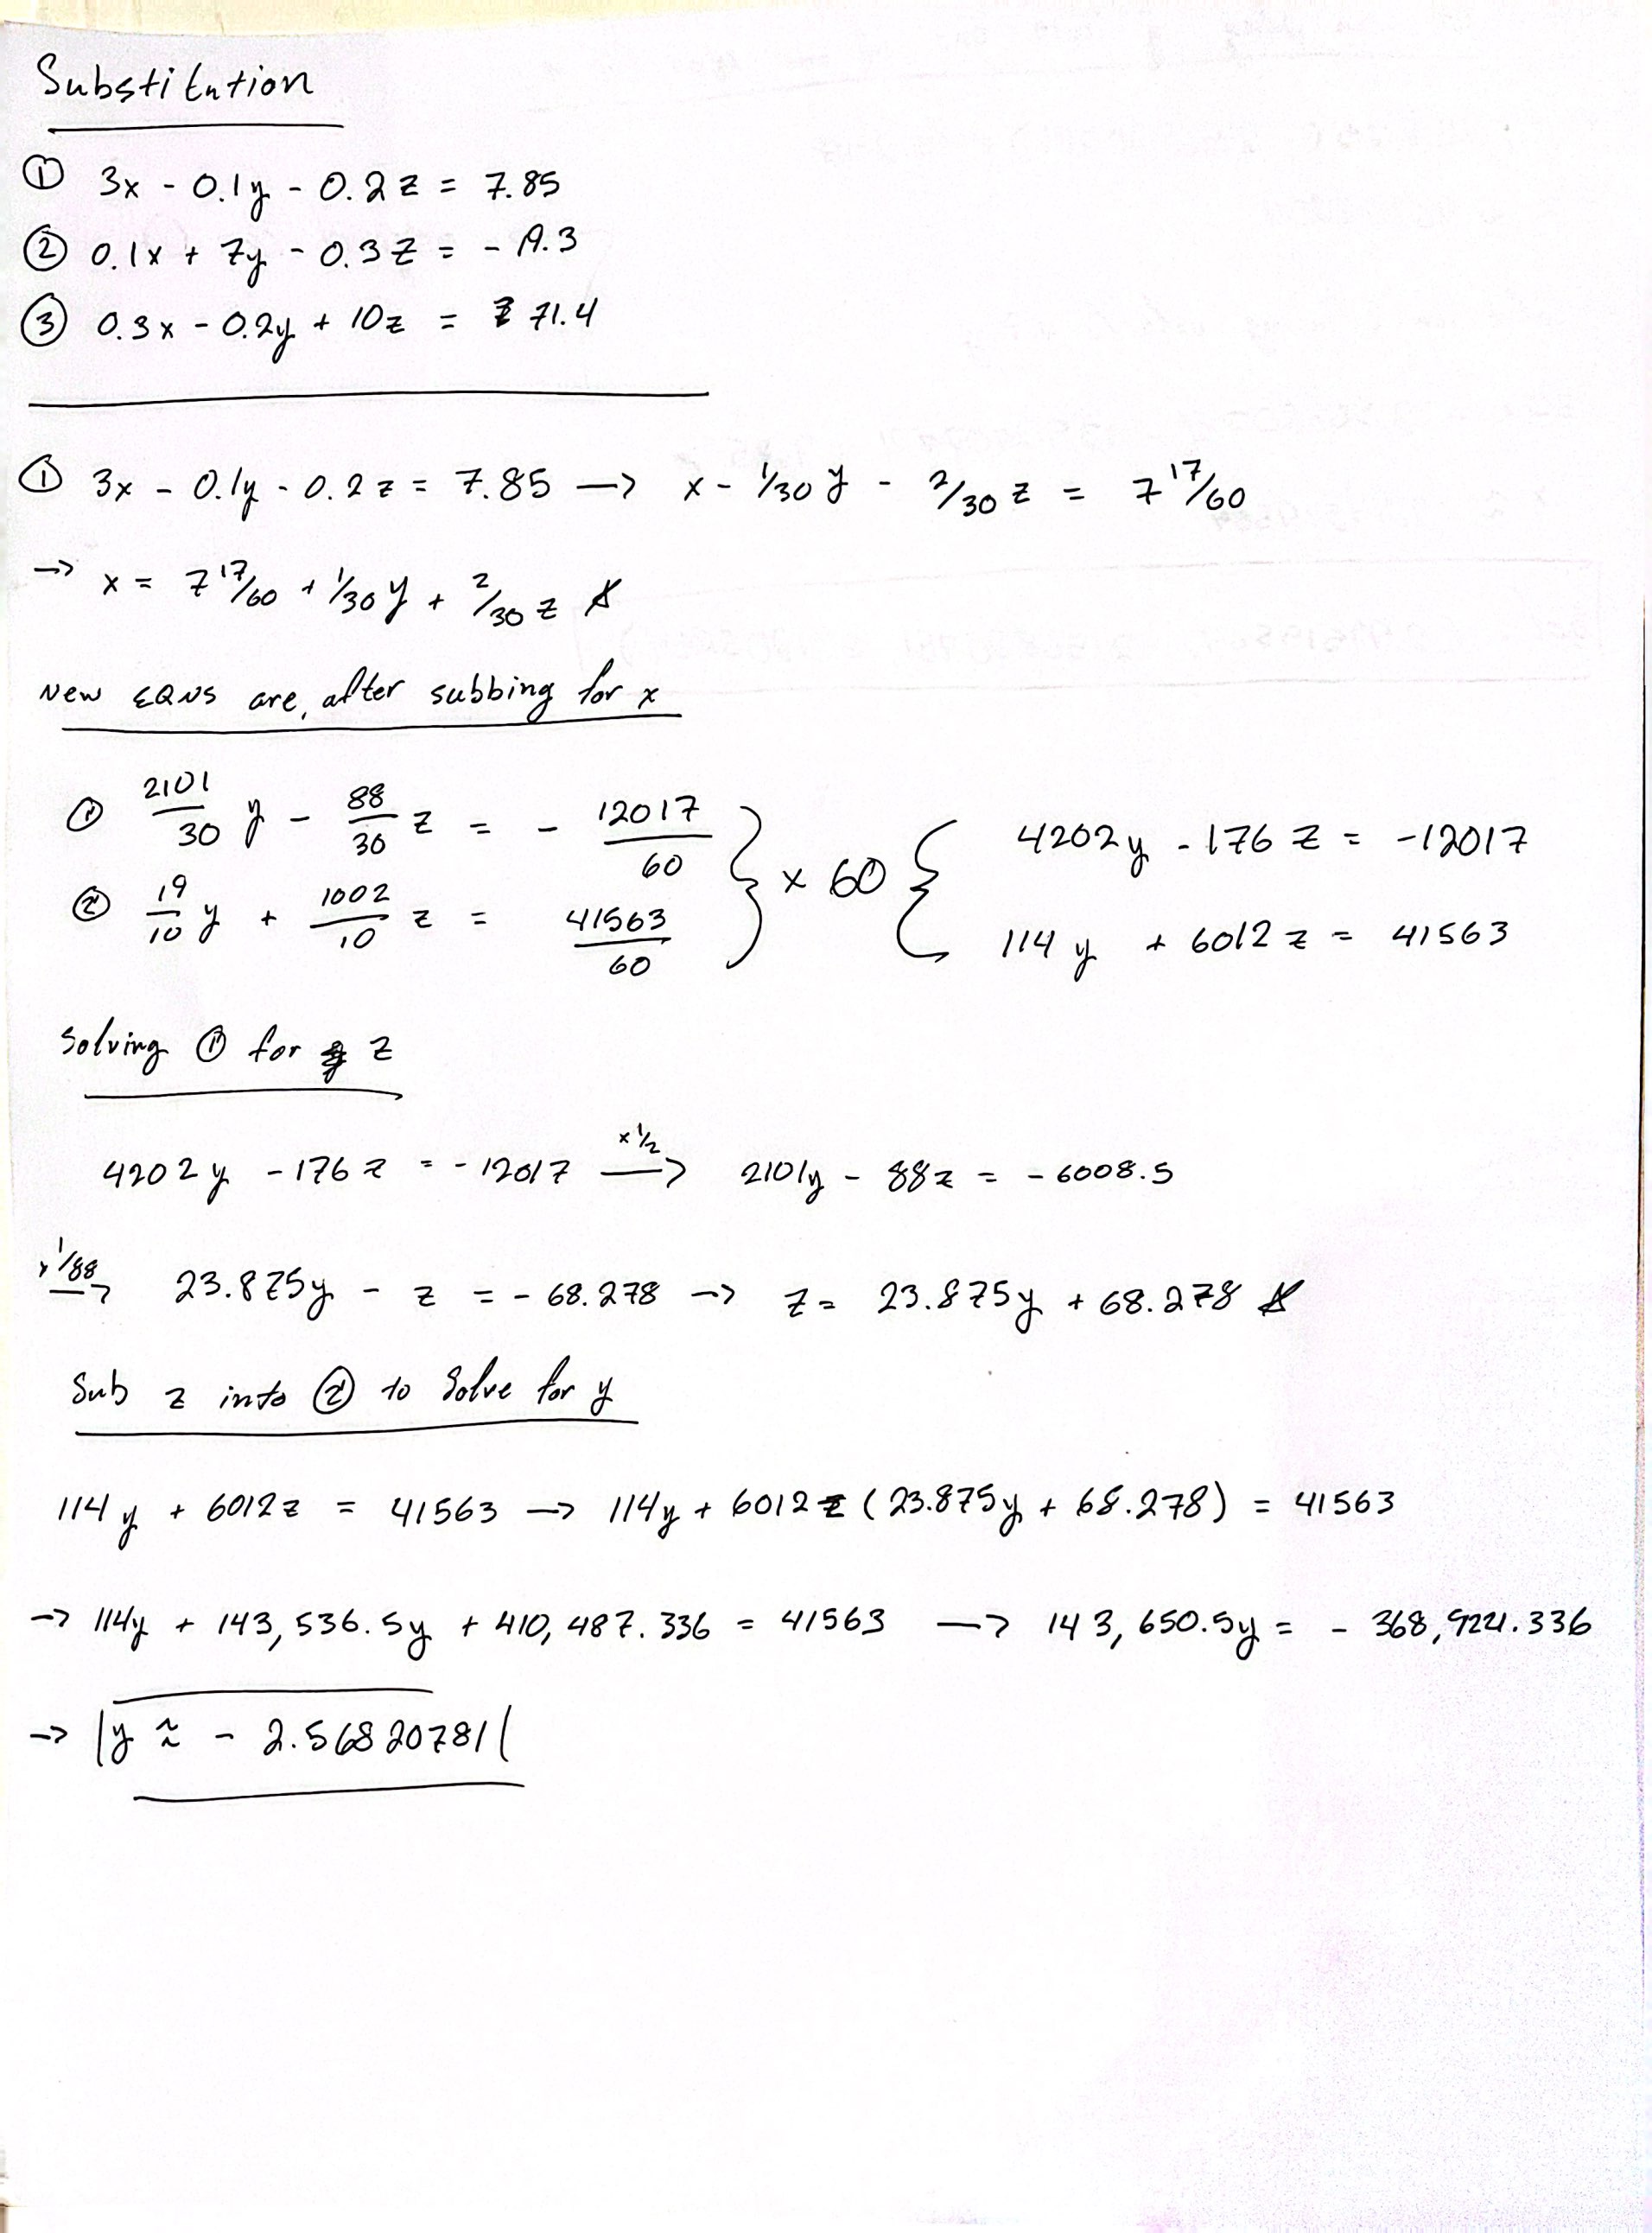 Substitution
① 3x - 0.1y - 0.2z = 7.85
② 0.1x + 7y - 0.3z = - 19.3
③ 0.3x - 0.2y + 10z = 71.4
① 3x - 0.1y - 0.2z = 7.85 → x - 1/30 y - 2/30 z = 7 17/60
→ x = 7 17/60 + 1/30 y + 2/30 z
New EQNS are, after subbing for x
① 2101/30 y - 88/30 z = - 12017/60 } x 60 { 4202y - 176z = -12017
② 19/10 y + 1002/10 z = 41563/60 114y + 6012z = 41563
Solving ① for z
4202y - 176z = - 12017 x 1/2 → 2101y - 88z = - 6008.5
x 1/88 → 23.875y - z = - 68.278 → z = 23.875y + 68.278
Sub z into ② to solve for y
114y + 6012z = 41563 → 114y + 6012 (23.875y + 68.278) = 41563
→ 114y + 143,536.5y + 410,487.336 = 41563 → 143,650.5y = - 368,924.336
→ |y ≈ - 2.56820781|